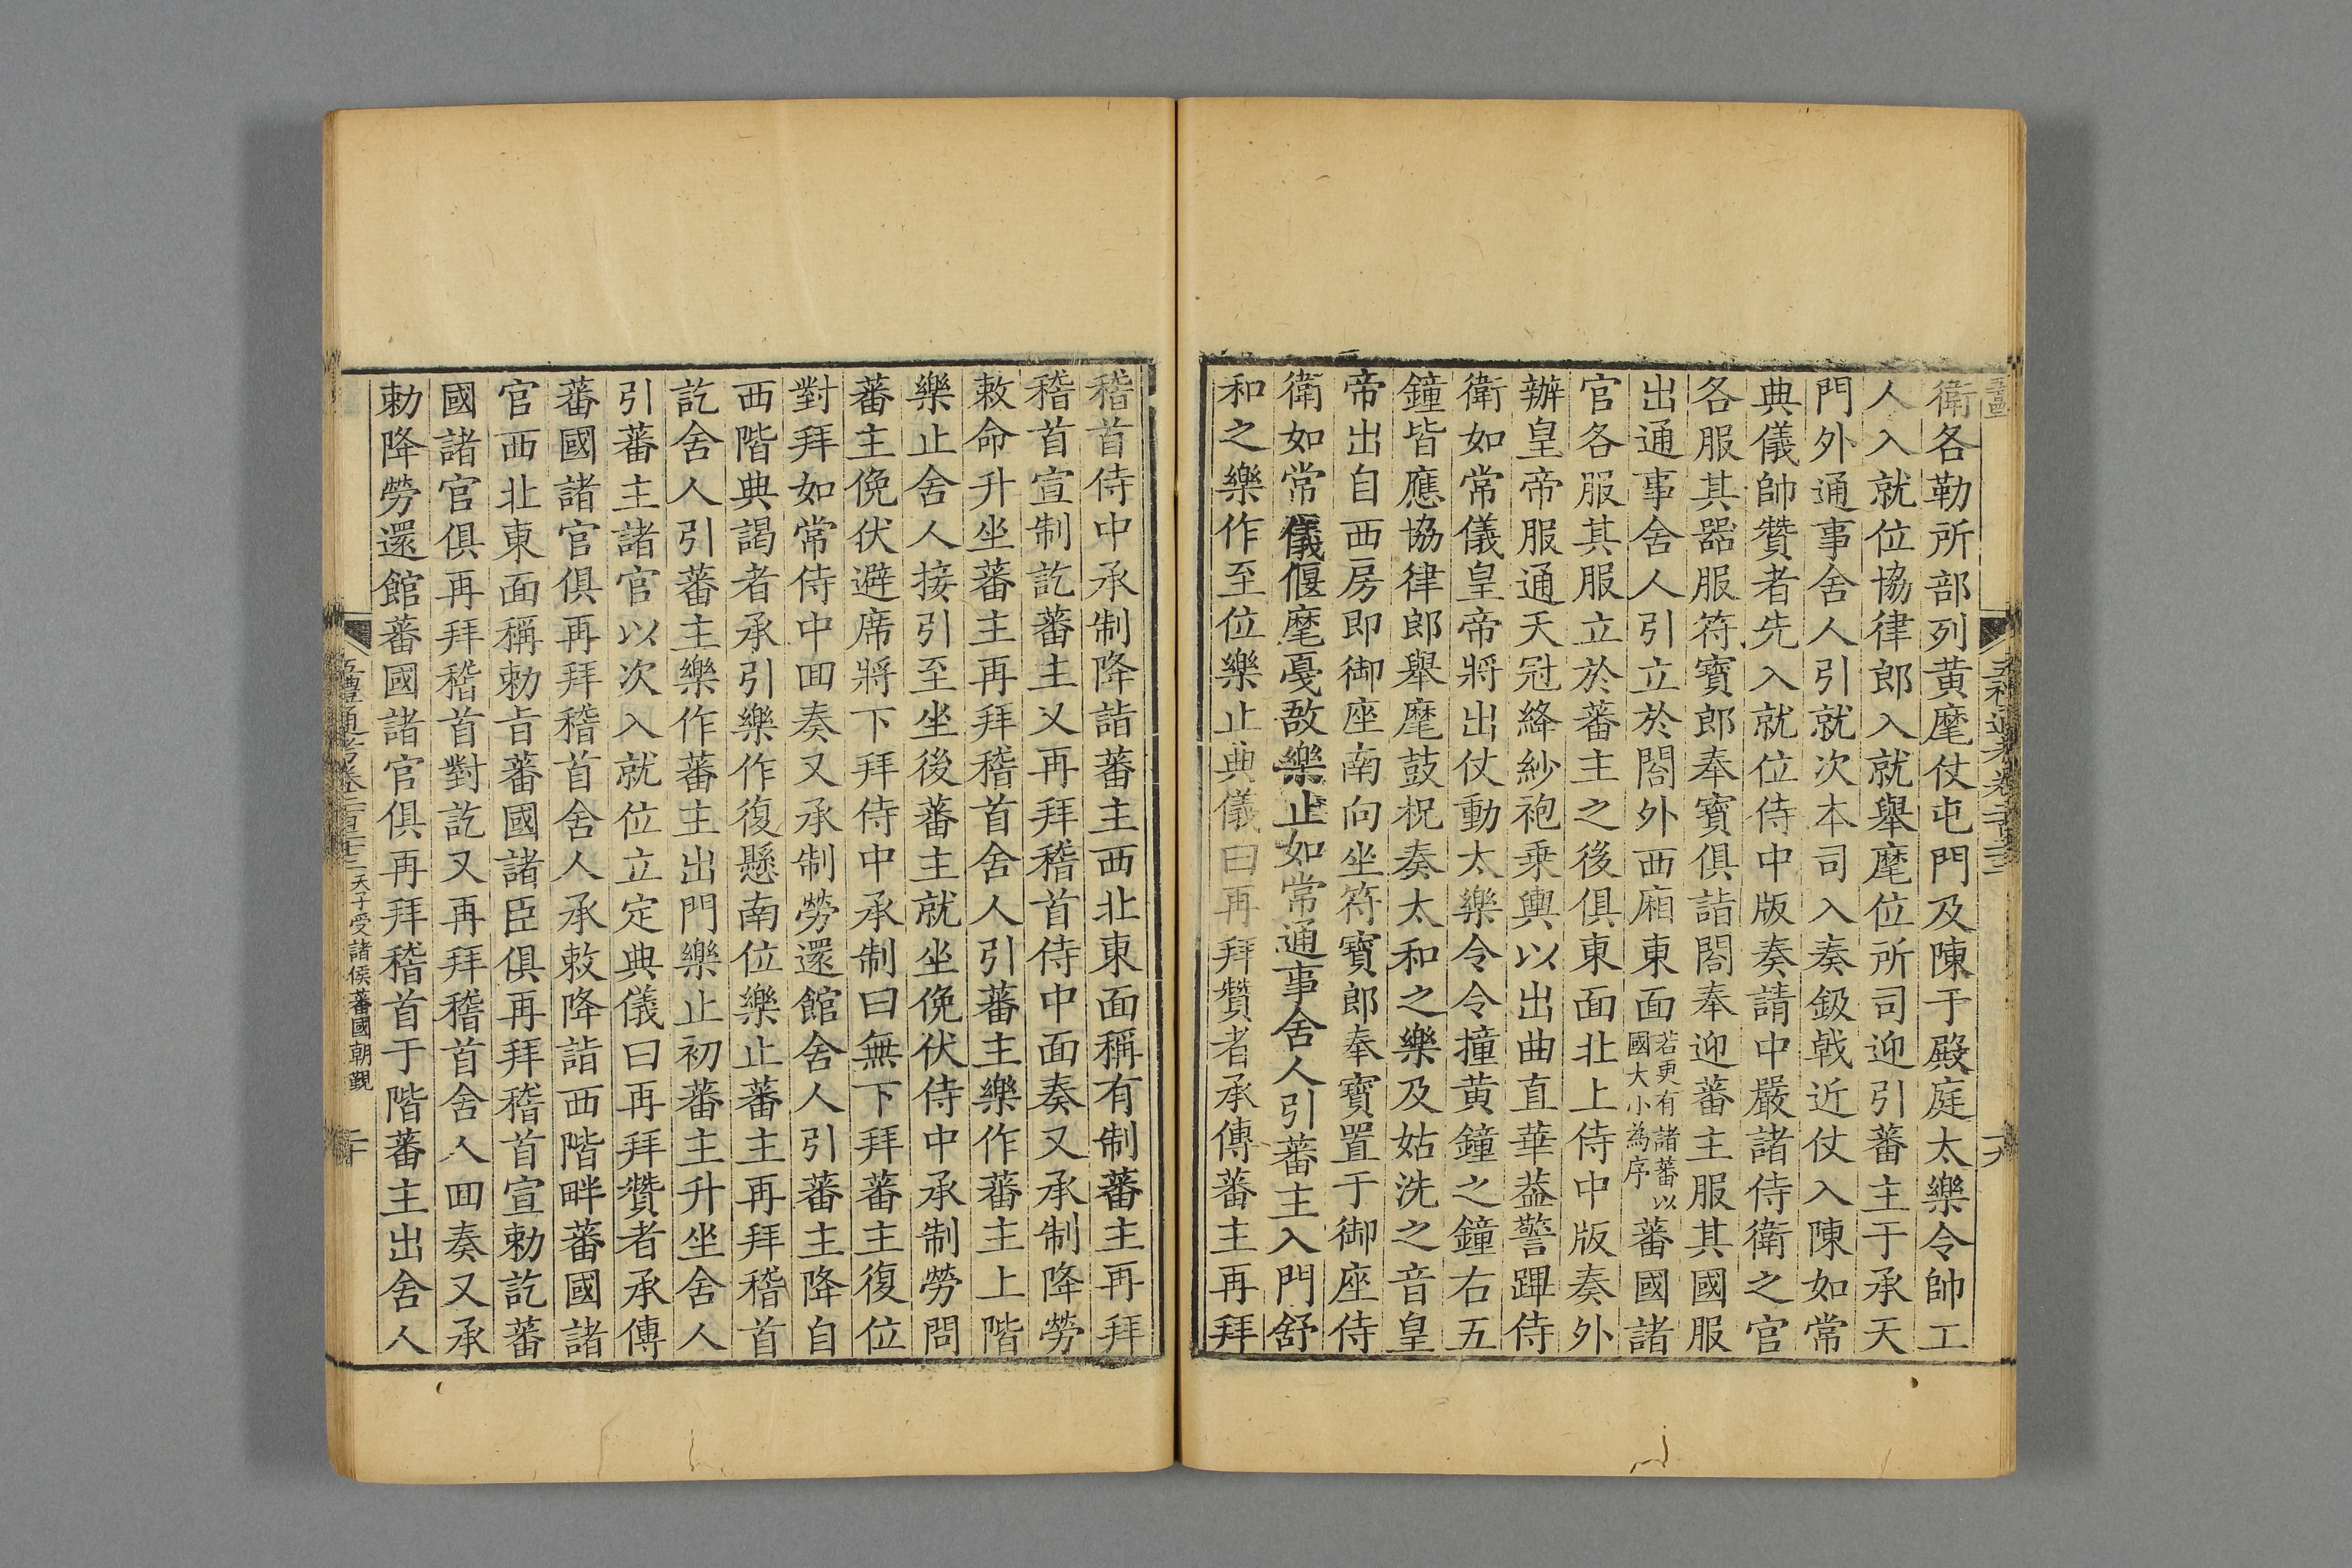 衛各勒所部列黃麾仗屯門及陳于殿庭太樂令帥工
人入就位協律郎入就舉麾位所司迎引蕃主于承天
門外通事舍人引就次本司入奏鈒戟近仗入陳如常
典儀帥贊者先入就位侍中版奏請中嚴諸侍衛之官
各服其器服符寶郎奉寶俱詣閤奉迎蕃主服其國服
出通事舍人引立於閤外西廂東面若更有諸蕃以國大小為序蕃國諸
官各服其服立於蕃主之後俱東面北上侍中版奏外
辦皇帝服通天冠絳紗袍乗輿以出曲直華葢警蹕侍
衛如常儀皇帝將出仗動太樂令令撞黃鐘之鐘右五
鐘皆應協律郎舉麾鼓柷奏太和之樂及姑洗之音皇
帝出自西房即御座南向坐符寶郎奉寶置于御座侍
衛如常儀偃麾戞敔樂止如常通事舍人引蕃主入門舒
和之樂作至位樂止典儀曰再拜贊者承傳蕃主再拜
稽首侍中承制降詣蕃主西北東面稱有制蕃主再拜
稽首宣制訖蕃主乂再拜稽首侍中面奏又承制降勞
敕命升坐蕃主再拜稽首舍人引蕃主樂作蕃主上階
樂止舍人接引至坐後蕃主就坐俛伏侍中承制勞問
蕃主俛伏避席將下拜侍中承制曰無下拜蕃主復位
對拜如常侍中回奏又承制勞還館舍人引蕃主降自
西階典謁者承引樂作復懸南位樂止蕃主再拜稽首
訖舍人引蕃主樂作蕃主出門樂止初蕃主升坐舍人
引蕃主諸官以次入就位立定典儀曰再拜贊者承傳
蕃國諸官俱再拜稽首舍人承敕降詣西階畔蕃國諸
官西北東面稱勅㫖蕃國諸臣俱再拜稽首宣勅訖蕃
國諸官俱再拜稽首對訖又再拜稽首舍人回奏又承
勅降勞還館蕃國諸官俱再拜稽首于階蕃主出舍人
五禮通考卷二百二十二 天子受諸侯蕃國朝覲 二十